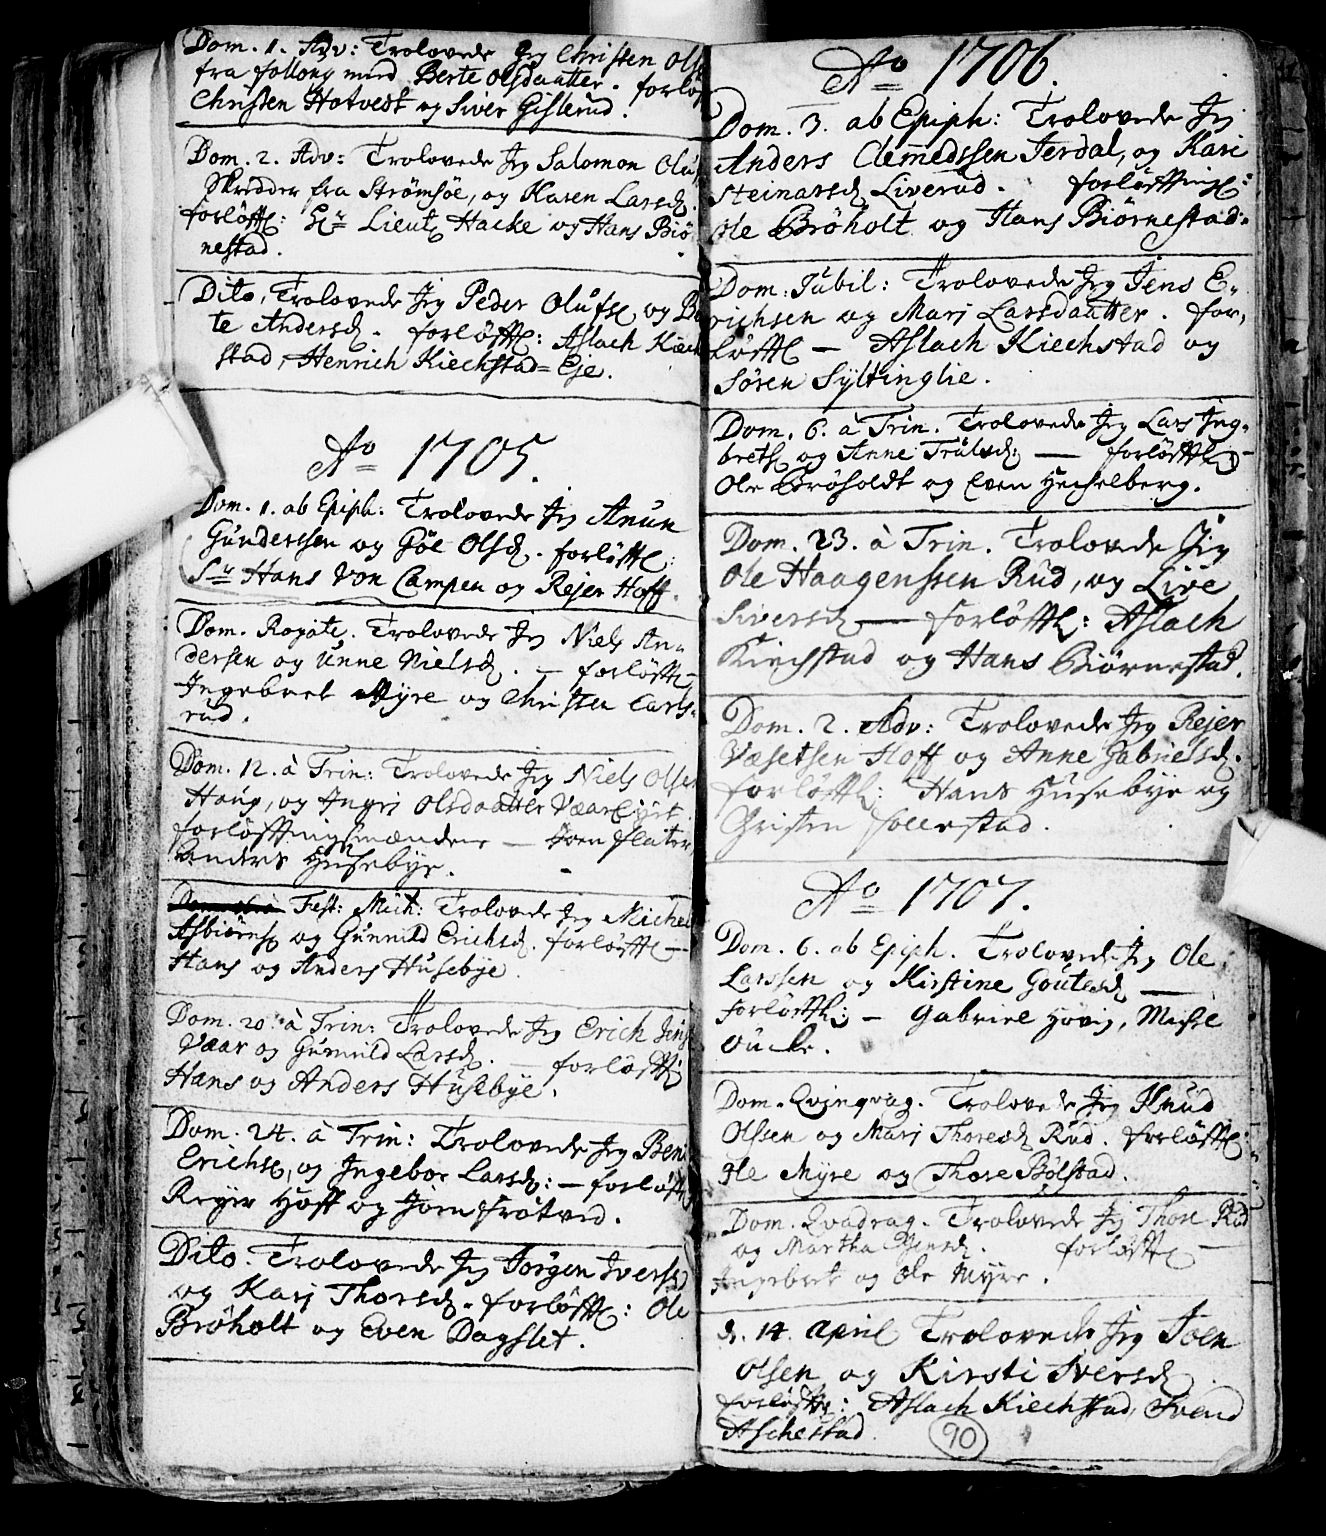 Dom. 1. Adv: Trolovede Jeg Christen Ols
fra follong med Berte Olsdaatter. forløf
Christen Hotvedt og Siver Gislerud.
Dom. 2. Adv: Trolovede Jeg Salomon Oluf
Skredder fra Strømsøe, og Karen Larsd.
forløfft: Hr Lieut Hacke og Hans Biø
nestad.
Dito, Trolovede Jeg Peder Olufs og Be
te Andersd. forløfft: Aslach Kiech
stad, Henrich Kiechstad=Eje.
Ao 1705.
Dom. 1. ab Epiph: Trolovede Jeg Anun
Gunderssen og Gøe Olsd. forløfft:
Sr Hans Von Campen og Rejer Hoff.
Dom. Rogate. Trolovede Jeg Niels An=
dersen og Anne Nielsd. — forløfft
Ingebret Myre og Christen Carls=
rud.
Dom. 12. à Trin: Trolovede Jeg Niels Olsen
Haug, og Ingri Olsdaatter
forløfftningsmændene — Joen flater,
Anders Husebye.
Fest: Mich: Trolovede Jeg Michel
Asbiørns og Gunnild Erichsd. forløfft —
Hans og Anders Husebye.
Dom. 20. à Trin: Trolovede Jeg Erich Jens
Vaar og Gunnild Larsd. — forløfft
Hans og Anders Husebye.
Dom. 24. à Trin: Trolovede Jeg Ben
Erichs, og Ingebor Larsd: — forløfft
Reyer Hoff og Joen frøtved.
Dito. Trolovede Jeg Jørgen Ivers
og Karj Thorsd. forløfft: Ole
Brøholt og Even Dagslet.
Ao 1706.
Dom. 3. ab Epiph: Trolovede Jeg
Anders Clemedssen Jerdal, og Kari
Steinarsd Liverud. forløfftning:
Ole Brøholt og Hans Biørnestad.
Dom: Jubil: Trolovede Jeg Jens E=
richsen og Marj Larsdaatter. for=
løfft — Aslach Kiechstad og
Søren Syltinglie.
Dom. 6. à Trin. Trolovede Jeg Lars Ing=
brets og Anne Trulsd: — forløfft
Ole Brøholdt og Even Hechselberg.
Dom. 23. à Trin. Trolovede Jeg
Ole Haagenssen Rud, og Live
Siversd — forløfft: Aslach
Kiechstad og Hans Biørnestad.
Dom. 2. Adv: Trolovede Jeg Rejer
Væsetsen Hoff og Anne Gabrielsd.
forløfft: Hans Husebye og
Christen follestad.
Ao 1707.
Dom. 6. ab Epiph. Trolovede Jeg Ole
Larssen og Kirstine Goutesd —
forløfft: — Gabriel Høvig,
Dom. Qvinqvag. Trolovede Jeg Knud
Olsen og Marj Thoresd Rud. forløfft:
Ole Myre og Thore Bølstad.
Dom. Qvadrag. Trolovede Jeg Thore Rud
og Martha Jensd. forløfft —
Ingebret og Ole Myre.
d. 14. April Trolovede Jeg Joen
Olsen og Kirsti Iversd
forløfft: Aslach Kiechstad, Svend
Aschestad.
90